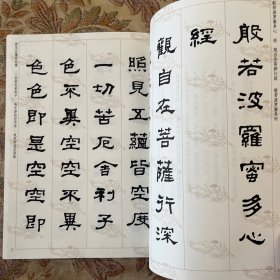 般若波羅蜜多心
經
觀自在菩薩行深
照見五蘊皆空度
一切苦厄舍利子
色不異空空不異
色色即是空空即